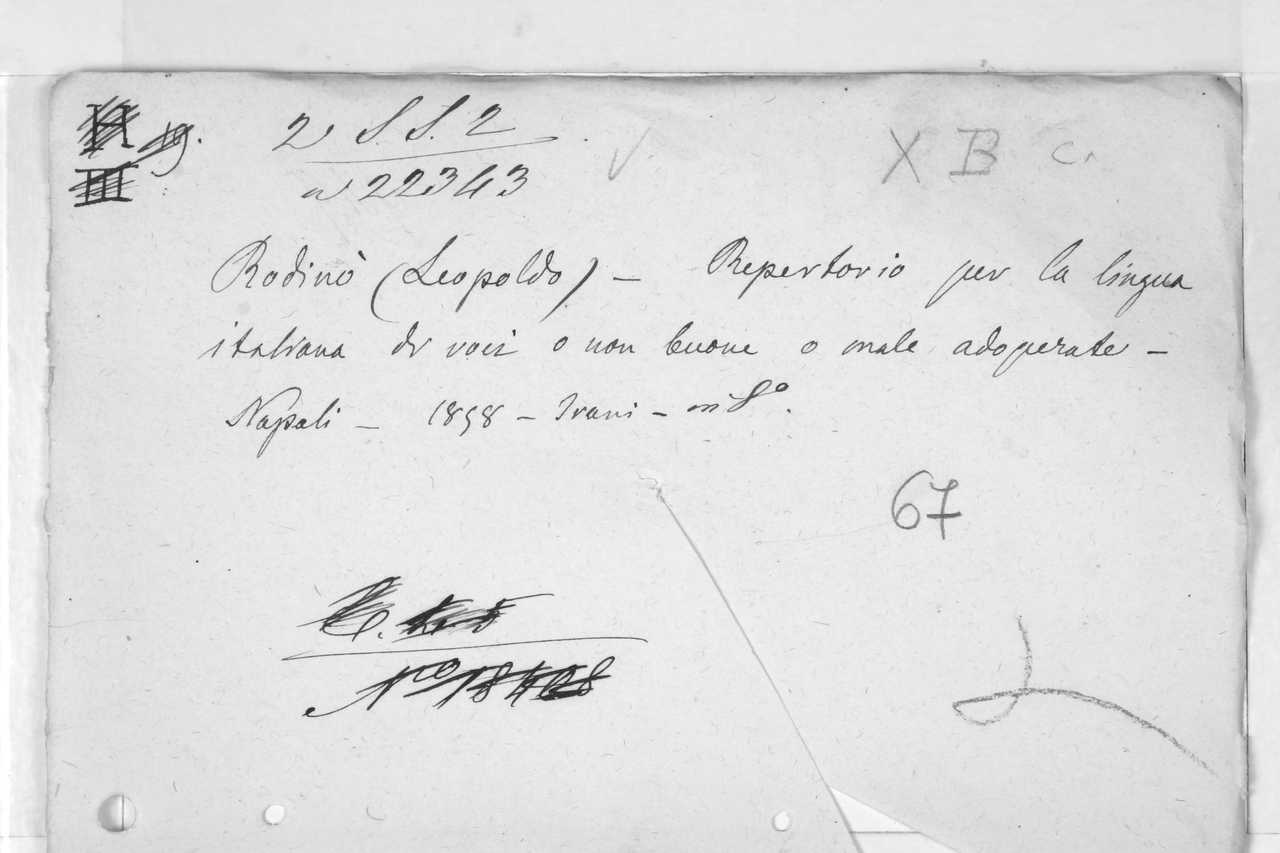 2a S. S. 2
X B c.
n 22343
Rodinò (Leopoldo) — Repertorio per la lingua
italiana di voci o non buone o male adoperate —
Napoli — 1858 — Trani — in 8º.
67